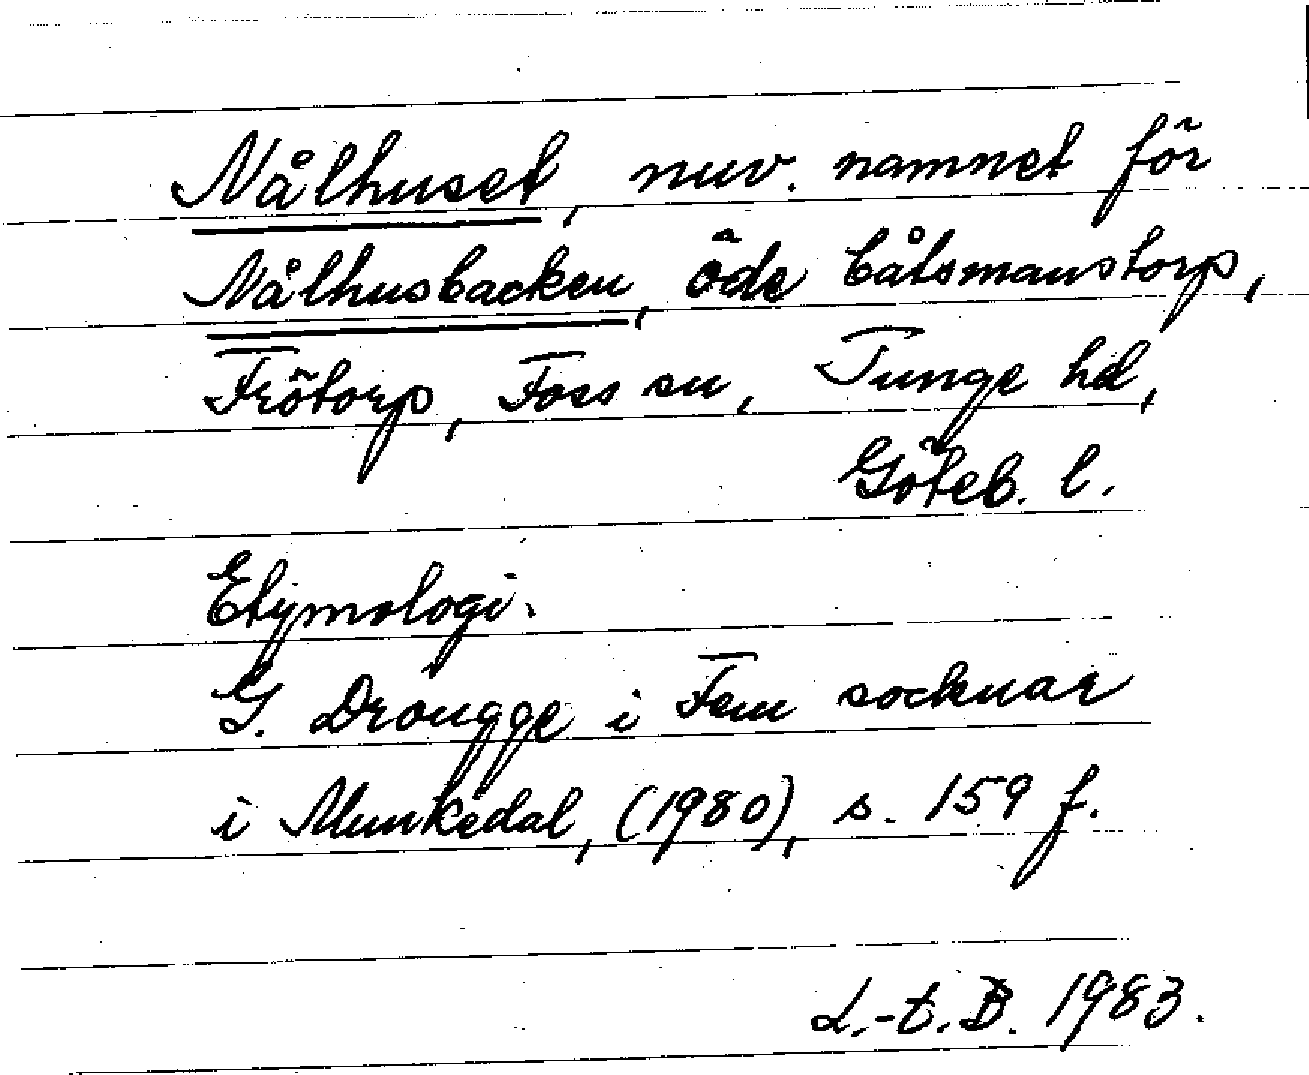 Nålhuset, nuv. namnet för
Nålhusbacken, öde båtsmanstorp,
Frötorp, Foss sn, Tunge hd,
Göteb. l.
Etymologi.
G. Drougge i Fem socknar
i Munkedal, (1980), s. 159 f.
L.-t. B. 1983.